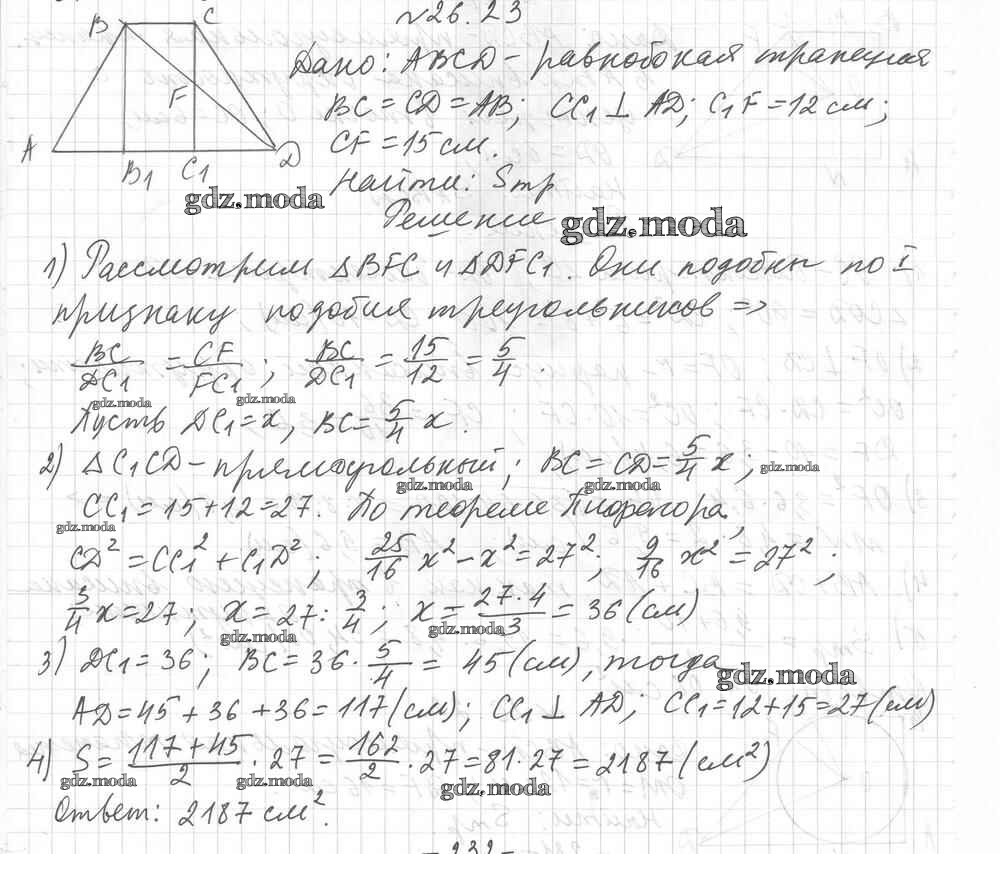 №26.23
B C
F
A B₁ C₁ D
Дано: ABCD – равнобокая трапеция
BC = CD = AB; CC₁ ⊥ AD; C₁F = 12 см;
CF = 15 см.
Найти: Sтр
gdz.moda
Решение
gdz.moda
1) Рассмотрим △BFC и △DFC₁. Они подобны по I
признаку подобия треугольников =>
BC/DC₁ = CF/FC₁; BC/DC₁ = 15/12 = 5/4.
gdz.moda gdz.moda
Пусть DC₁ = x, BC = 5/4 x.
2) △C₁CD – прямоугольный; BC = CD = 5/4 x;
gdz.moda gdz.moda gdz.moda
CC₁ = 15 + 12 = 27. По теореме Пифагора,
gdz.moda
CD² = CC₁² + C₁D²; 25/16 x² – x² = 27²; 9/16 x² = 27²;
3/4 x = 27; x = 27 : 3/4; x = 27·4/3 = 36 (см)
gdz.moda gdz.moda
3) DC₁ = 36; BC = 36 · 5/4 = 45 (см), тогда
gdz.moda
AD = 45 + 36 + 36 = 117 (см); CC₁ ⊥ AD; CC₁ = 12 + 15 = 27 (см)
4) S = 117 + 45/2 · 27 = 162/2 · 27 = 81 · 27 = 2187 (см²)
gdz.moda gdz.moda gdz.moda
Ответ: 2187 см².